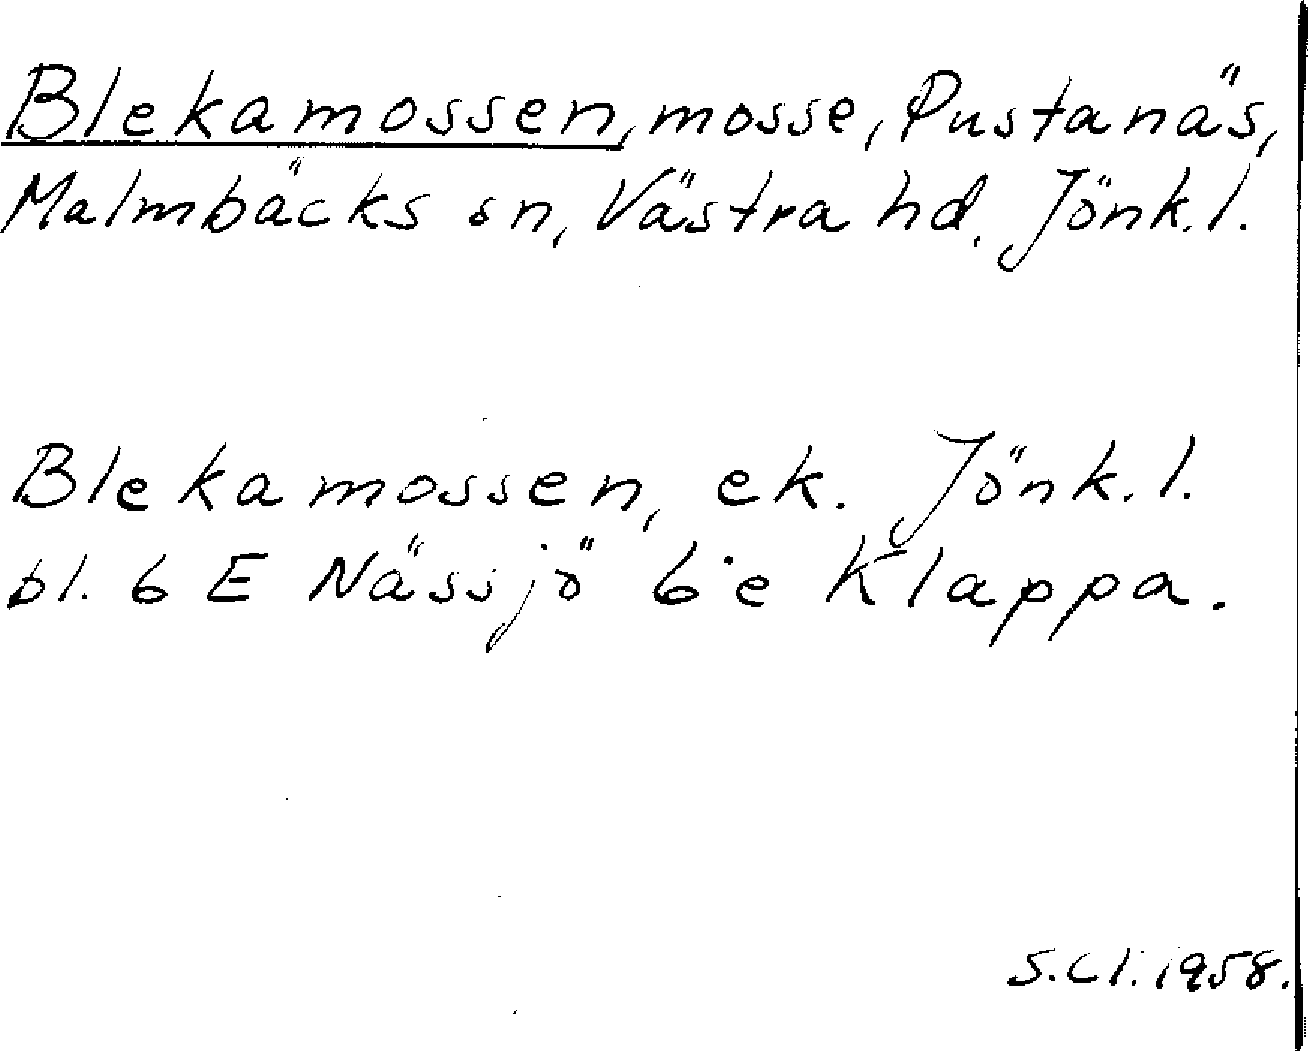 Blekamossen, mosse, Pustanäs,
Malmbäcks sn, Västra hd. Jönk. l.
Blekamossen, ek. Jönk. l.
bl. 6 E Nässjö 6 e Klappa.
S. Cl. 1958.